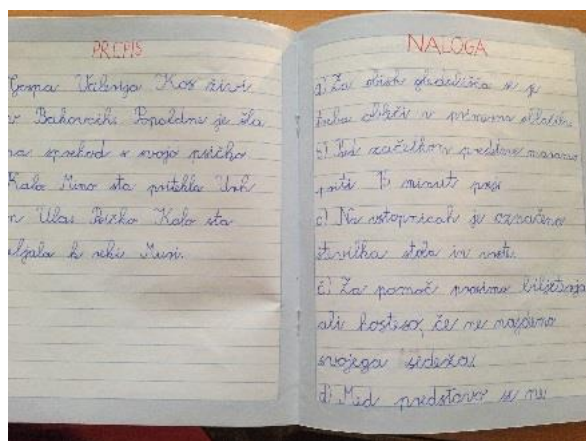 PREPIS
Gospa Vilenija Kos živi
v Bakovcih. Popoldne je šla
na sprehod s svojo psičko
Kalo. Mimo sta pritekla Urh
in Ulas. Psičko Kalo sta
peljala k reki Muri.
NALOGA
a) Za obisk gledališča se je
treba obleči v primerna oblačila.
b) Pred začetkom predstave moramo
priti 15 minut prej.
c) Na vstopnicah je označena
številka stola in vrste.
č) Za pomoč prosimo biljeterja
ali hosteso, če ne najdemo
svojega sedeža.
d) Med predstavo se ne